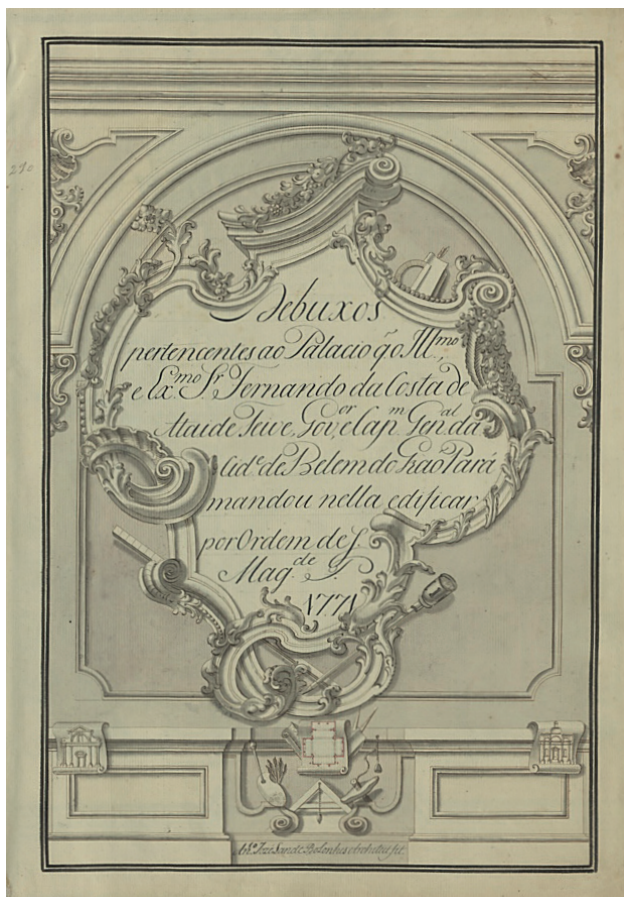 270
Debuxos
pertencentes ao Palacio q̃ o Ill.mo
e Ex.mo Sr. Fernando da Costa de
Ataide Teive, Gov.or e Cap.m Gen.al da
Cid.e de Belem do Graõ Pará
mandou nella edificar
por Ordem de S.
Mag.de
1771
An.to Joze Landi Bolonhes Architeto fes.